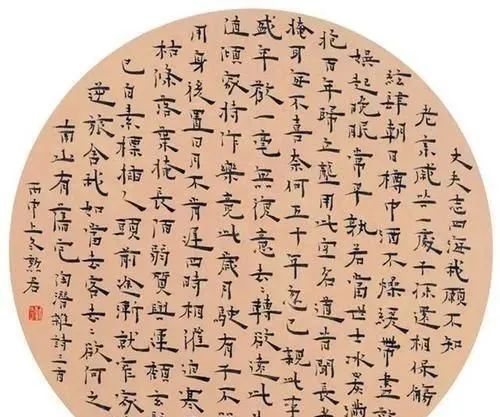 丈夫志四海我願不知
老亲戚共一處子孫還相保觴
絃肆朝日樽中酒不燥緩帶盡
娛起晚眠常早孰若當世士冰炭
抱百年歸丘壟用此空名道昔聞長者
掩耳每不喜奈何五十年忽已親此事
盛年歡一毫無復意去〻轉欲遠此
值傾家持作樂竟此歲月駛有子不
用身後置日月不肯遲四時相催迫
枯條落葉掩長陌弱質與運頹玄
已白素標插人頭前途漸就窄家
逆旅舍我如當去客去〻欲何之
南山有舊宅 陶潛雜詩三首
丙申上冬